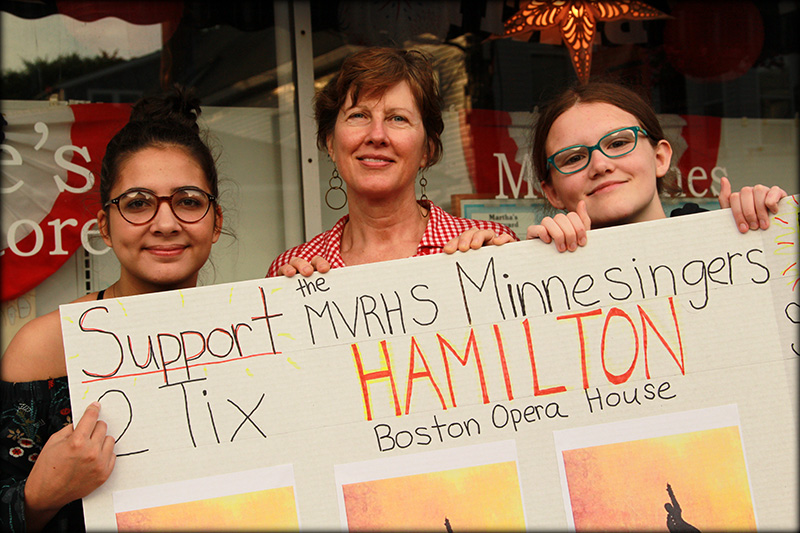 's
ore
Martha's
Support the MVRHS Minnesingers
2 Tix HAMILTON
Boston Opera House